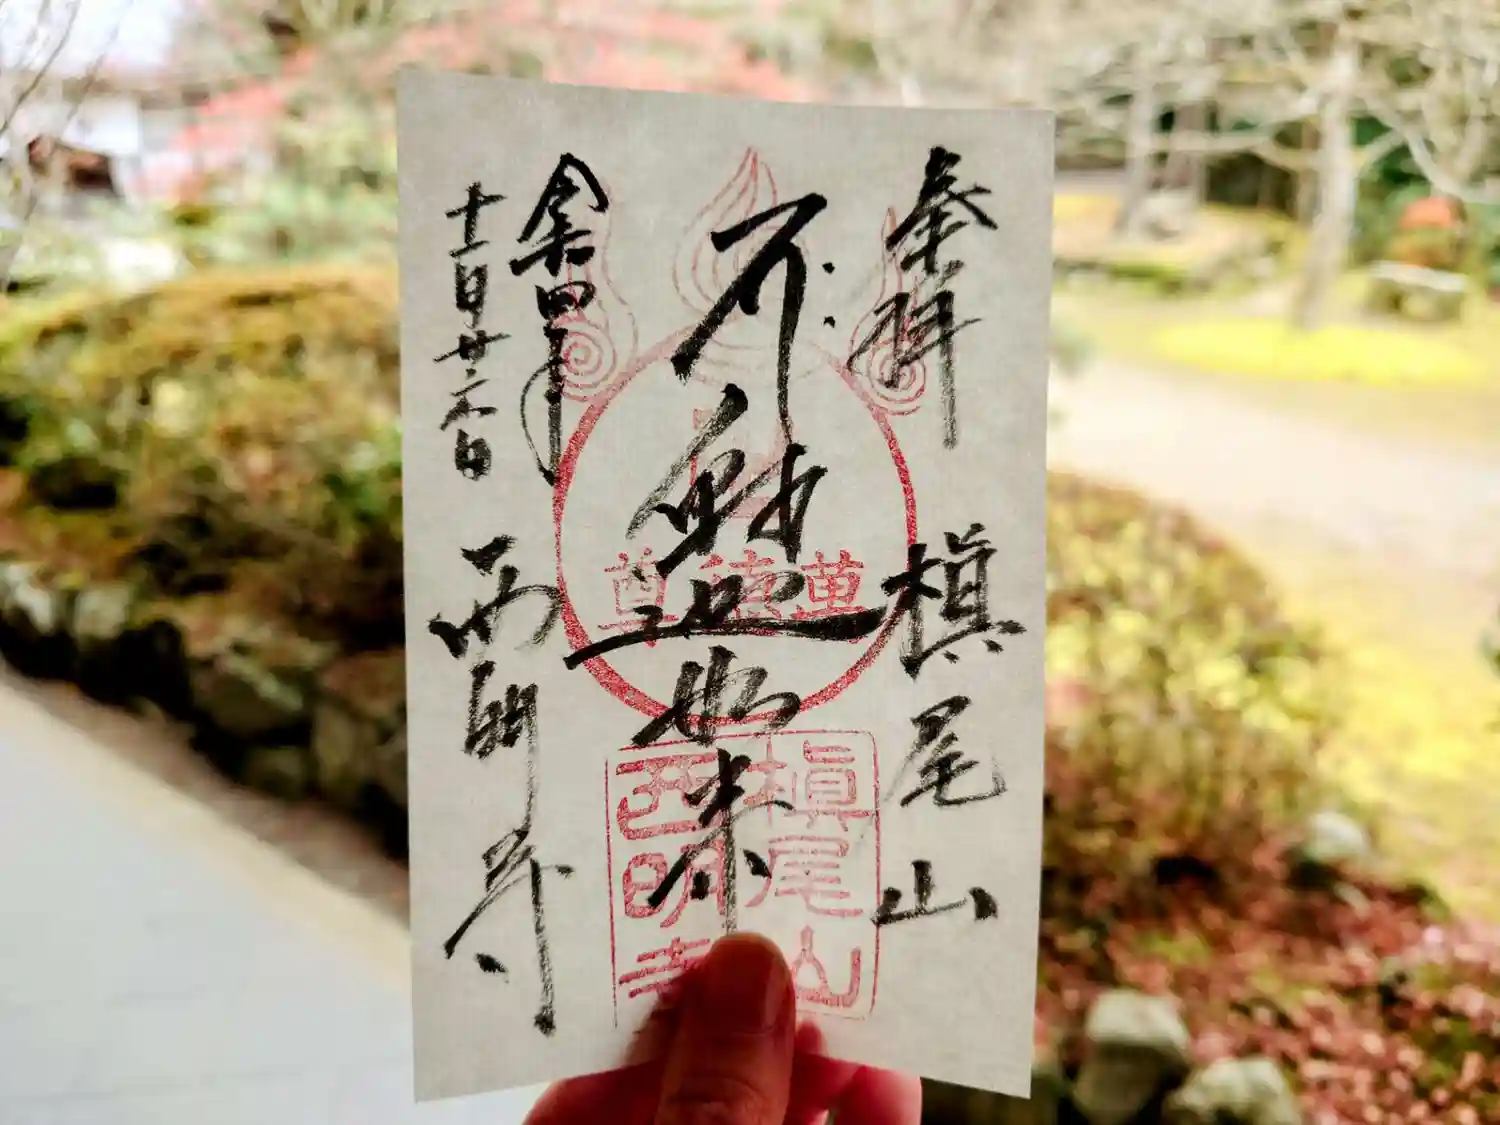 奉拝
槇尾山
釈迦如来
令和四年
十一月廿六日
西明寺
萬徳尊
槇尾山
西明寺